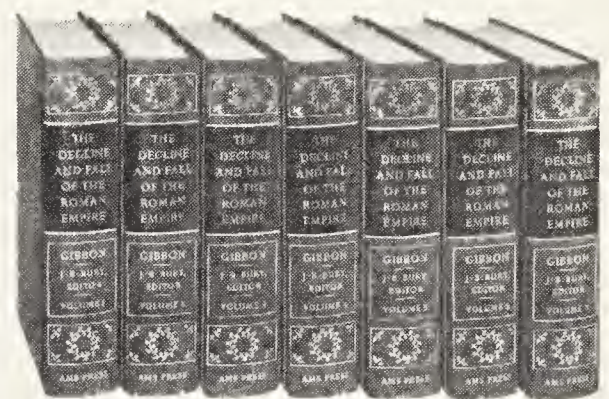 THE
DECLINE
AND FALL
OF THE
ROMAN
EMPIRE
GIBBON
J·B·BURY,
EDITOR
VOLUME
AMS PRESS
THE
DECLINE
AND FALL
OF THE
ROMAN
EMPIRE
GIBBON
J·B·BURY,
EDITOR
VOLUME
AMS PRESS
THE
DECLINE
AND FALL
OF THE
ROMAN
EMPIRE
GIBBON
J·B·BURY,
EDITOR
VOLUME
AMS PRESS
THE
DECLINE
AND FALL
OF THE
ROMAN
EMPIRE
GIBBON
J·B·BURY,
EDITOR
VOLUME
AMS PRESS
THE
DECLINE
AND FALL
OF THE
ROMAN
EMPIRE
GIBBON
J·B·BURY,
EDITOR
VOLUME
AMS PRESS
THE
DECLINE
AND FALL
OF THE
ROMAN
EMPIRE
GIBBON
J·B·BURY,
EDITOR
VOLUME
AMS PRESS
THE
DECLINE
AND FALL
OF THE
ROMAN
EMPIRE
GIBBON
J·B·BURY,
EDITOR
VOLUME
AMS PRESS